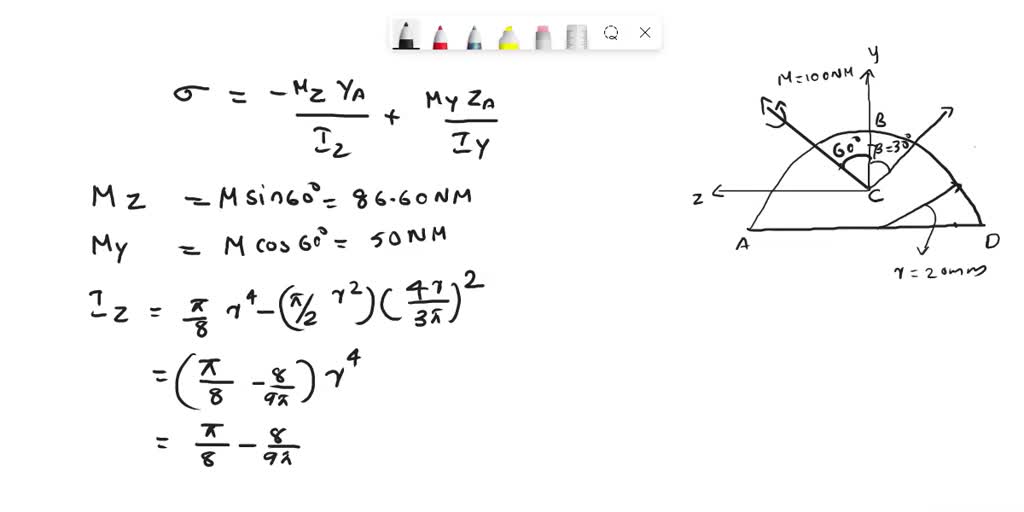 σ = -M_Z Y_A / I_Z + M_Y Z_A / I_Y
M_Z = M sin60° = 86.60NM
M_Y = M cos60° = 50NM
I_Z = π/8 r^4 - (π/2 r^2) (4r/3π)^2
= (π/8 - 8/9π) r^4
= π/8 - 8/9π
Y
M=100NM
B
60° β=30°
Z C
A D
r=20mm